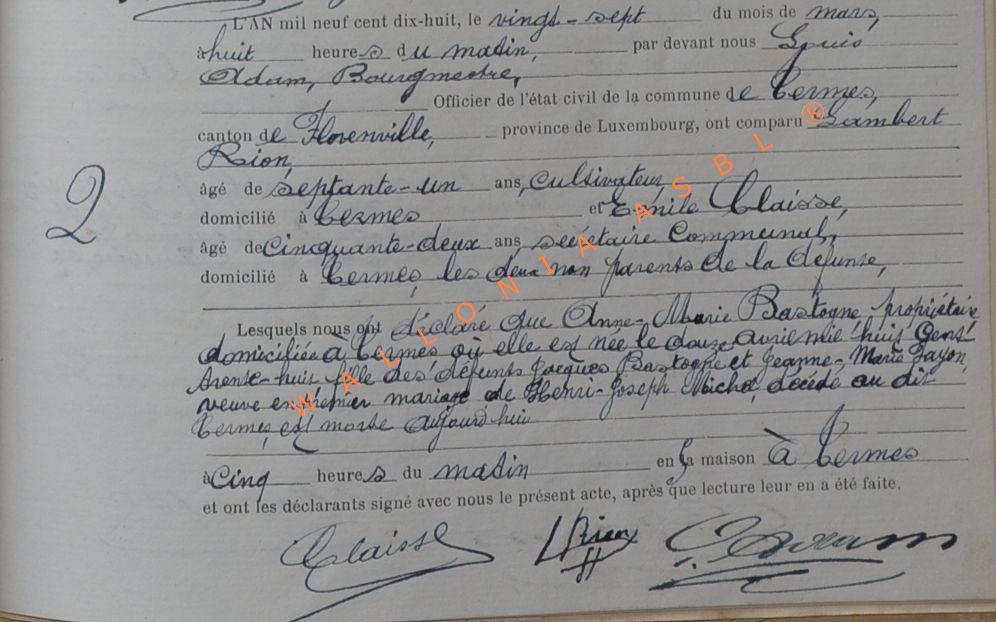 L'AN mil neuf cent dix-huit, le vingt-sept du mois de mars,
à huit heures du matin, par devant nous Louis
Adam, Bourgmestre,
Officier de l'état civil de la commune de Termes,
canton de Florenville, province de Luxembourg, ont comparu Lambert
Rion,
âgé de septante-un ans, Cultivateur,
domicilié à Termes et Emile Claisse,
âgé de Cinquante-deux ans secrétaire Communal,
domicilié à Termes les deux non parents de la défunte,
Lesquels nous ont déclaré que Anne-Marie Bastogne propriétaire
domiciliée à Termes où elle est née le douze avril mil huit Cent
trente-huit fille des défunts Jacques Bastogne et Jeanne-Marie
veuve en premier mariage de Henri-Joseph Michel, décédé au dit
Termes, est morte aujourd'hui
à Cinq heures du matin en sa maison à Termes
et ont les déclarants signé avec nous le présent acte, après que lecture leur en a été faite.
Claisse LRion
2
WALLONIA ASBL ®